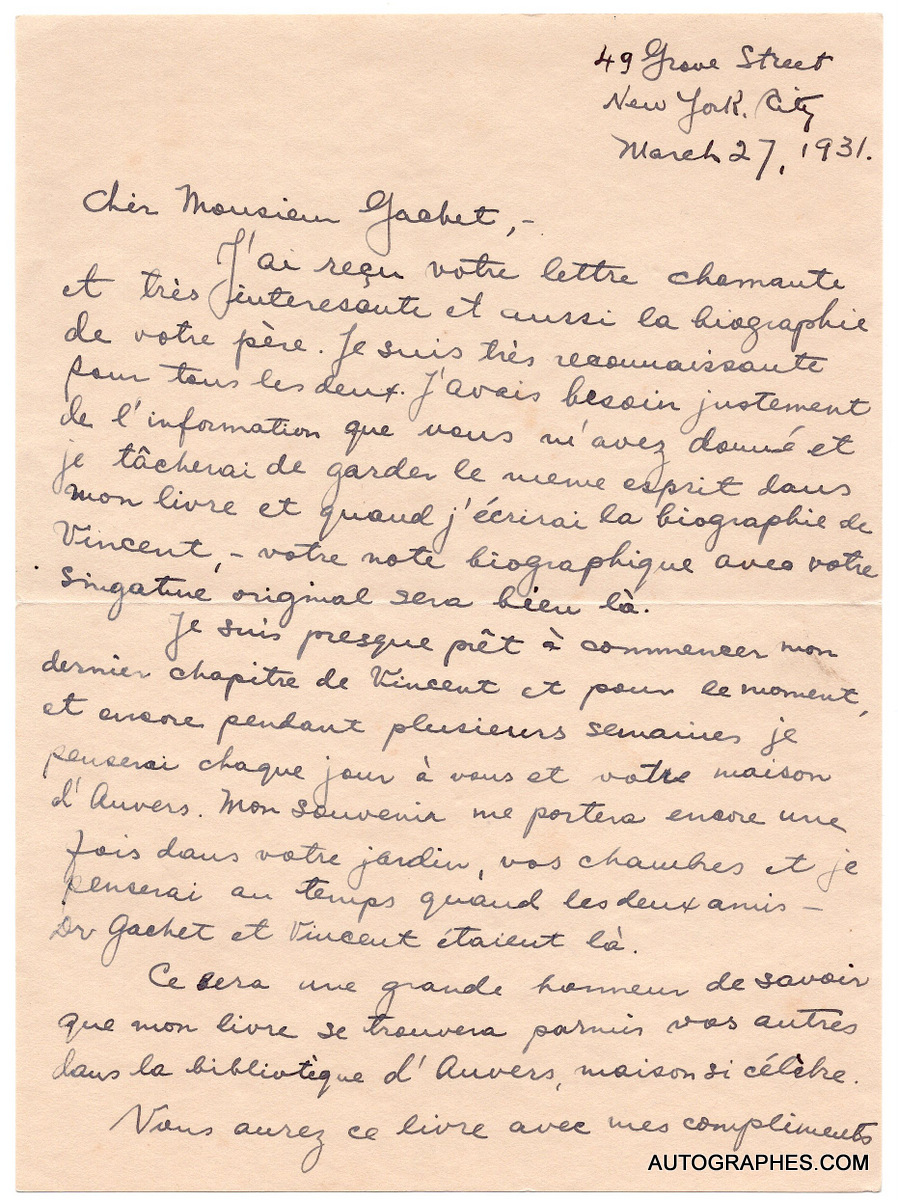 49 Grove Street
New York City
March 27, 1931.
Cher Monsieur Gachet,-
J'ai reçu votre lettre chamante
et très interesante et aussi la biographie
de votre père. Je suis très reconnaissante
pour tous les deux. J'avais besoin justement
de l'information que vous m'avez donné et
je tâcherai de garder le meme esprit dans
mon livre et quand j'écrirai la biographie de
Vincent,- votre note biographique avec votre
singature original sera bien là.
Je suis presque prêt à commencer mon
dernier chapitre de Vincent et pour le moment,
et encore pendant plusieurs semaines je
penserai chaque jour à vous et votre maison
d'Auvers. Mon souvenir me portera encore une
fois dans votre jardin, vos chambres et je
penserai au temps quand les deux amis -
Dr Gachet et Vincent étaient là.
Ce sera une grande honneur de savoir
que mon livre se trouvera parmis vos autres
dans la bibliotèque d'Auvers, maison si célèbre.
Vous aurez ce livre avec mes compliments
AUTOGRAPHES.COM